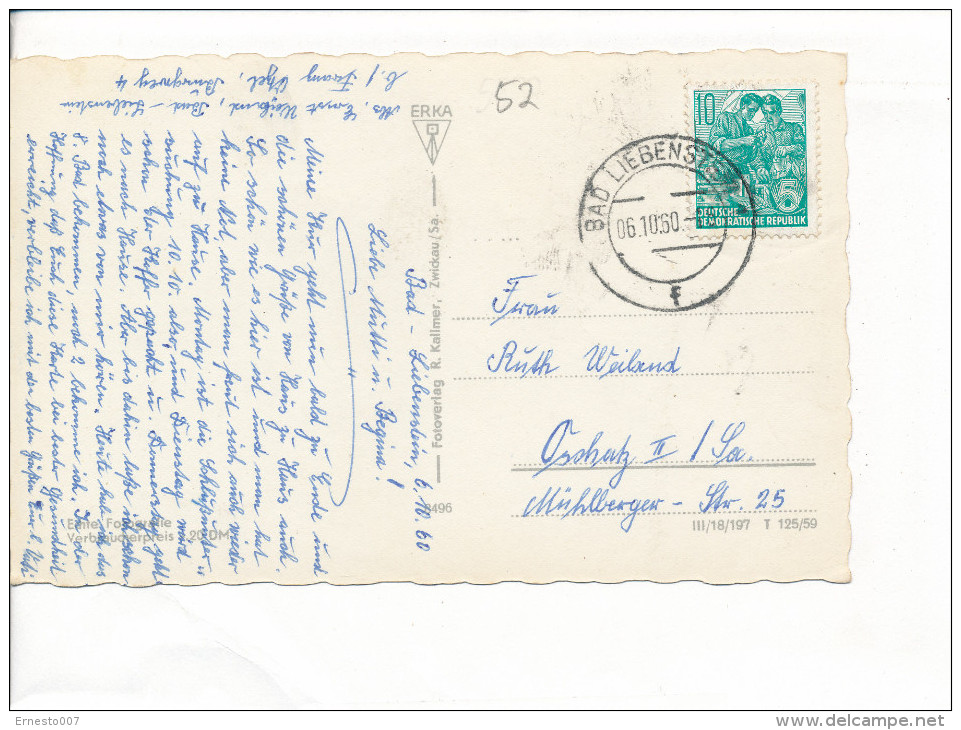 Abs. Ernst Weiland, Bad-Liebenstein
b/ Franz Vogel, Burgweg 4
52
ERKA
10
DEUTSCHE
DEMOKRATISCHE REPUBLIK
BAD LIEBENSTEIN
06.10.60.
f
Bad-Liebenstein, 6.10.60
Liebe Mutti u. Regina!
Meine Kur geht nun bald zu Ende und
die schönen Grüße von Haus zu Haus auch.
So schön wie es hier ist und man hat
keine Not, aber man freut sich auch wieder
auf zu Hause. Montag ist die Schlußunter=
suchung 10.10. also, und Dienstag wird
schon der Koffer gepackt u. Donnerstag geht
es nach Hause. Aber bis dahin laße ich schon
mal etwas von mir hören. Heute hab ich das
8. Bad bekommen, noch 2 bekomme ich. In der
Hoffnung daß Euch diese Karte bei bester Gesundheit
erreicht, verbleibe ich mit den besten Grüßen Euer l. Vati
Fotoverlag R. Kallmer, Zwickau/Sa.
8496
Echte Fotografie
Verbraucherpreis -,20 DM
Frau
Ruth Weiland
Oschatz II / Sa.
Mühlberger-Str. 25
III/18/197 T 125/59
Ernesto007
delcampe.net